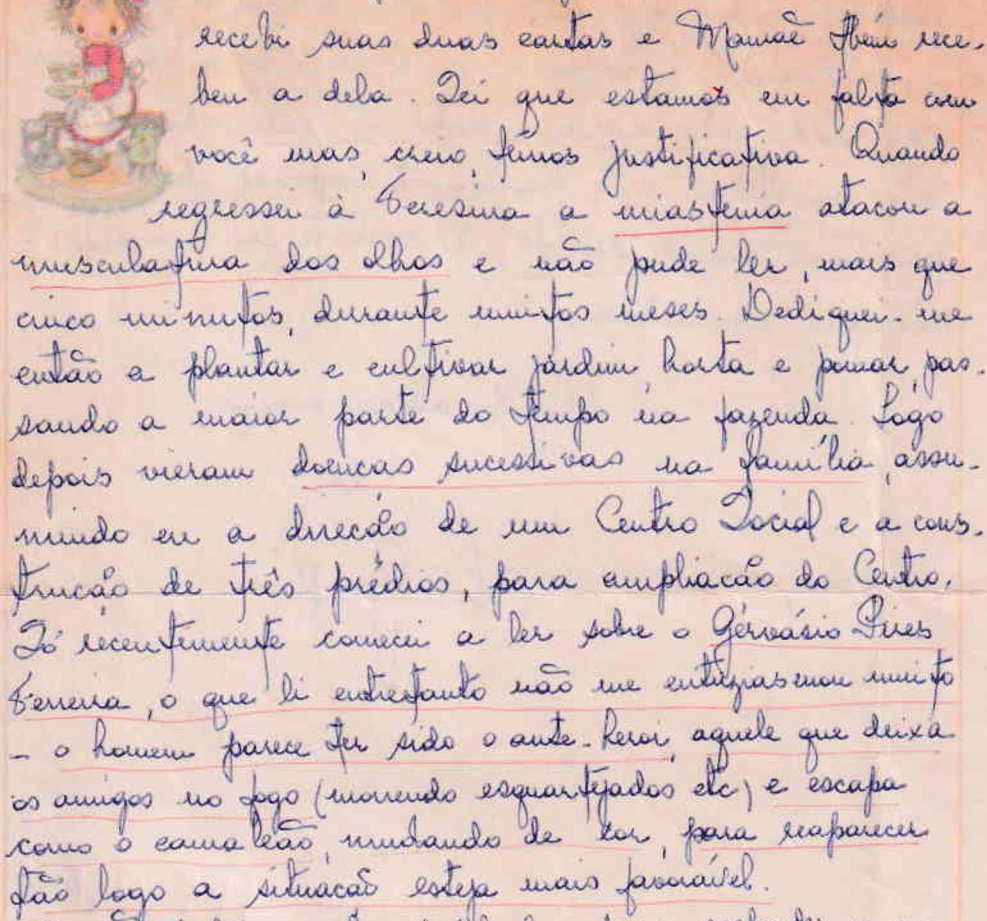 recebi suas duas cartas e Mamãe tbém rece-
beu a dela. Sei que estamos em falta com
você mas, creio, temos justificativa. Quando
regressei à Teresina a miastenia atacou a
musculatura dos olhos e não pude ler, mais que
cinco minutos, durante muitos meses. Dediquei-me
então a plantar e cultivar jardim, horta e pomar, pas-
sando a maior parte do tempo na fazenda. Logo
depois vieram doencas sucessivas na família, assu-
mindo eu a direcão de um Centro Social e a cons-
trucão de três prédios, para ampliacão do Centro.
Só recentemente comecei a ler sobre o Gérvásio Pires
Ferreira, o que li entretanto não me entuziasmou muito
- o homem parece ter sido o ante-heroi, aquele que deixa
os amigos no fogo (morrendo esquartejados etc) e escapa
como o camaleão, mudando de cor, para reaparecer
tão logo a situacão esteja mais favorável.